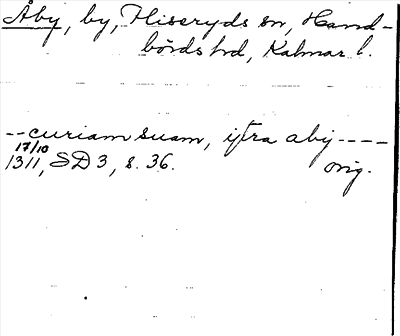 Åby, by, Hliseryds sn, Hand-
börds hd, Kalmar l.
-- curiam suam, ijtra abij ----
17/10
1311, SD 3, s. 36. orig.